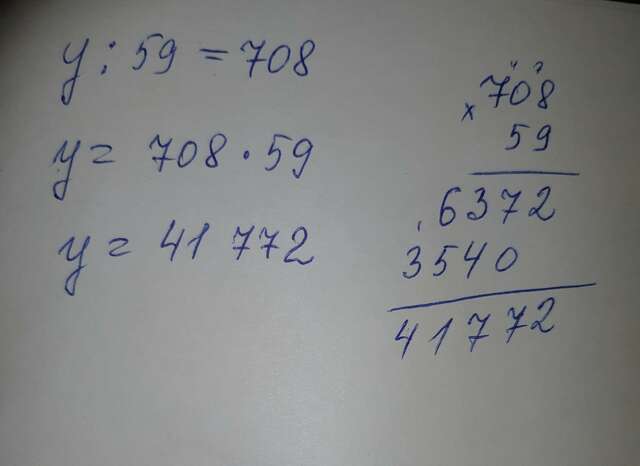 y : 59 = 708
y = 708 · 59
y = 41 772
× 708
59
6372
3540
41772